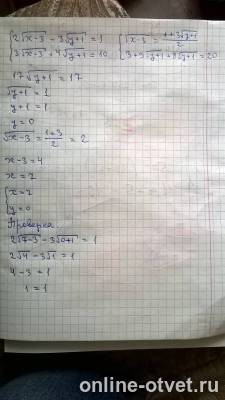 {2√x-3 - 3√y+1 = 1 {√x-3 = 1+3√y+1/2
{3√x-3 + 4√y+1 = 10 {3+9√y+1+8√y+1=20
17√y+1 = 17
√y+1 = 1
y+1 = 1
y = 0
√x-3 = 1+3/2 = 2
x-3=4
x = 7
{x=7
{y=0
Проверка
2√7-3 - 3√0+1 = 1
2√4 - 3√1 = 1
4-3 = 1
1 = 1
online-otvet.ru